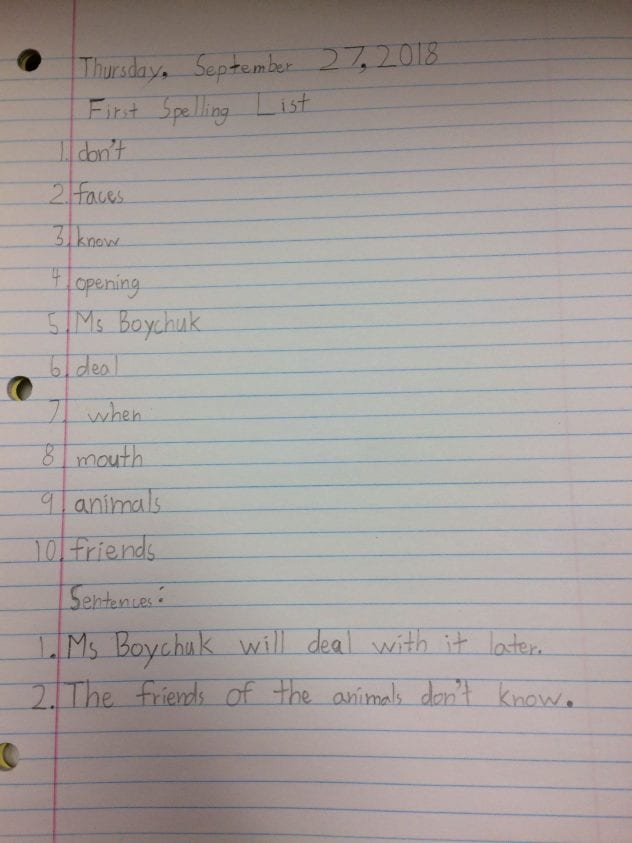 Thursday, September 27, 2018
First Spelling List
1. don't
2. faces
3. know
4. opening
5. Ms Boychuk
6. deal
7. when
8 mouth
9 animals
10. friends
Sentences:
1. Ms Boychuk will deal with it later.
2. The friends of the animals don't know.